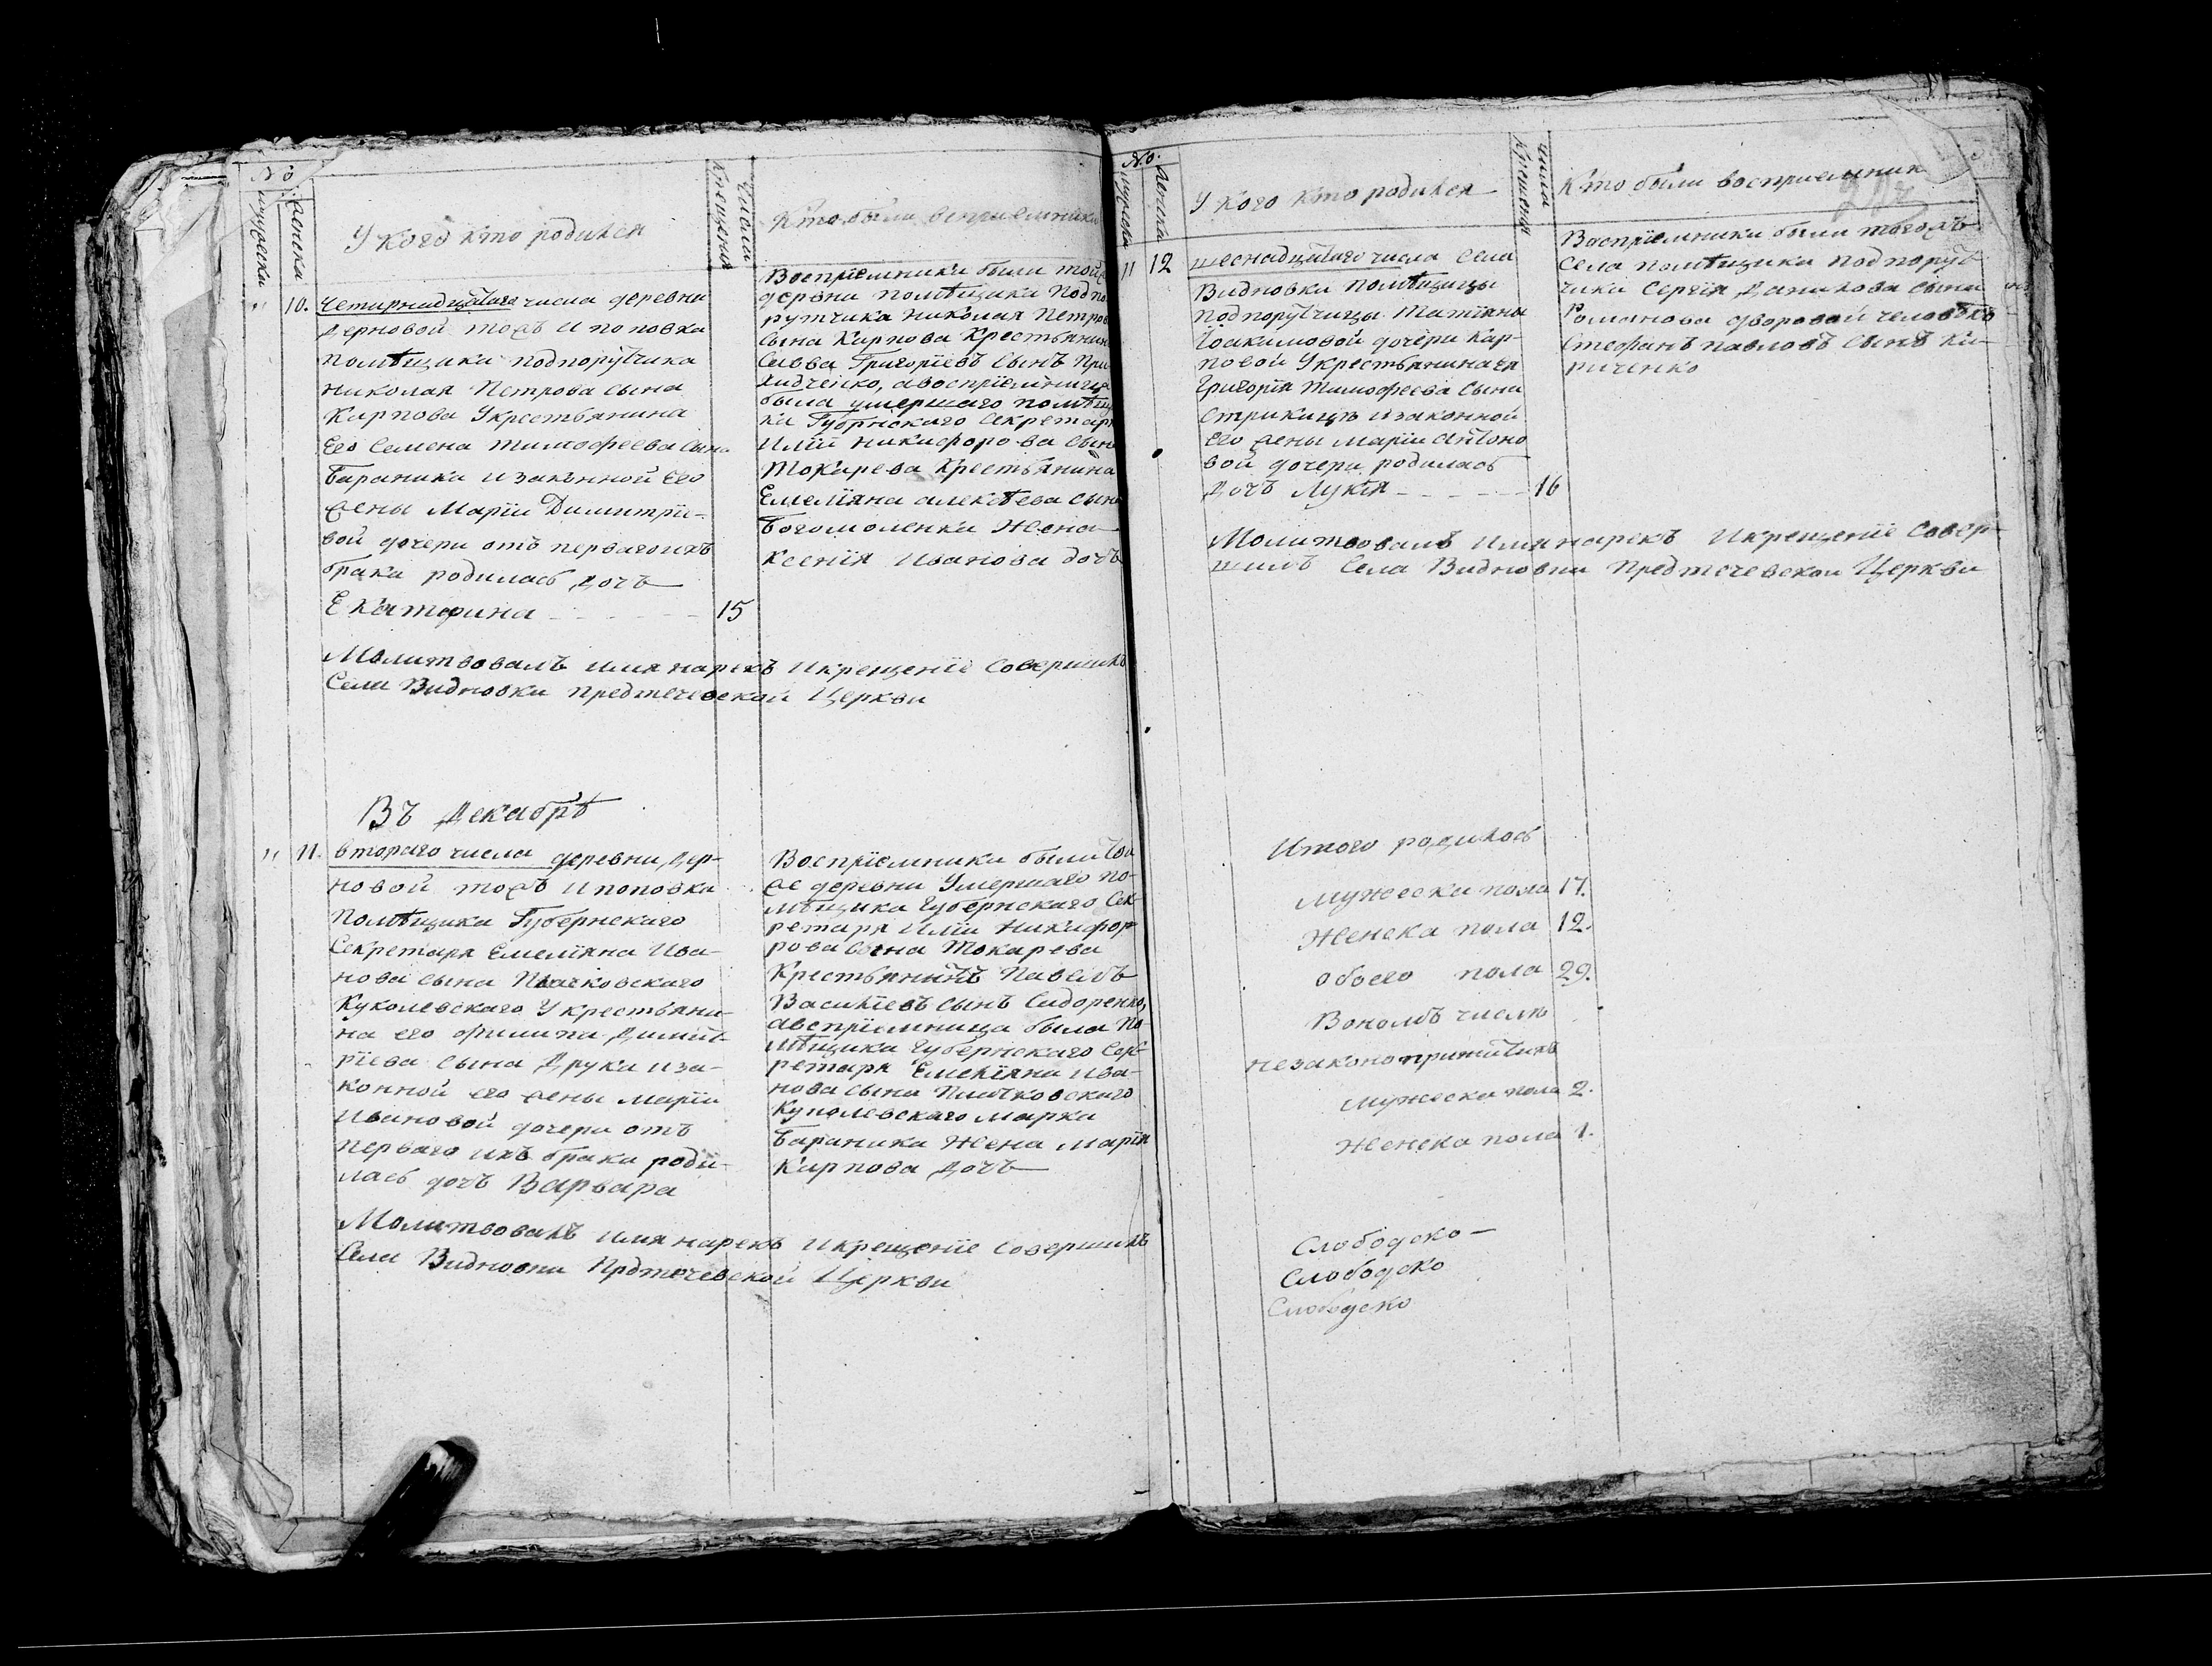 №
мужески
женски
У кого кто родился
Число Крещения
Кто были восприемники
" 10. Четирнадцатаго числа деревни
Дерновой тожъ и поповки
помѣщика подпорутчика
Николая Петрова сына
Карпова У крестьянина
Его Семена Тимофеева сына
Бараника и законной Его
жены Маріи Димитріе-
вой дочери отъ перваго ихъ
брака родилась дочь
Екатерина 15
Воспріемники были той
деревни помѣщика Подпо
рутчика Николая Петров
сына Карпова Крестьянин
Савва Григоріевъ сынъ При
была умершаго помѣщ
ка Губрнскаго Секретар
Иліи Никифорова сын
Токарева Крестьянина
Емеліяна алексѣева сын
Богомоленка Жена
Ксенія Иванова дочь
Молитвовалъ имя нарекъ И крещеніе Совершилъ
Села Видновки предтечевской Церкви
Въ Декабрѣ
" 11. втораго числа деревни Дер-
новой тожъ и поповки
Помѣщика Губернскаго
Секретаря Емеліяна Ива-
нова сына
Куколевскаго У крестьяни-
на его Филипа Димит-
ріева сына Друка и за-
конной его жены Маріи
Ивановой дочери отъ
перваго ихъ брака роди-
лась дочь Варвара
Воспріемники были тоя
же деревни Умершаго по-
мѣщика Губернскаго Сек-
ретаря Иліи Никифор
рова сына Токарева
Крестьянинъ Павелъ
Василіевъ сынъ Сидоренко,
авспріемница была По-
мѣщика Губернскаго Сек-
ретаря Емеліяна Ива-
нова сына
Куколевскаго Марка
Бараника Жена Марія
Карпова дочь
Молитвовалъ имя нарекъ И крещеніе Совершилъ
Села Видновки Прдтечевской Церкви
№.
мужески
женски
У кого кто родился
числа Крещения
Кто были восприемник
" 12 шеснадцатаго числа Села
Видновки помѣщицы
Подпорутчицы Татіяны
Іоакимовой дочери Кар-
повой У крестьянина ея
Григорія Тимофеева сына
Его жены Маріи Антоно
вой дочери родилась
Дочь Лукія 16
Воспріемники были тогожъ
Села помѣщика подпорут
чика Сергія Данилова сына
Романова дворовой человѣкъ
Стефанъ Павловъ Сынъ Ки-
риченко
Молитвовалъ имя нарекъ И крещеніе Совер-
шилъ Села Видновки Предтечевской Церкви
Итого родилось
мужеска пола 17.
Женска пола 12.
обоего пола 29.
Вономъ числѣ
незаконоприжитихъ
мужеска пола 2.
Женска пола 1.
Слободско-
Слободско
Слободско